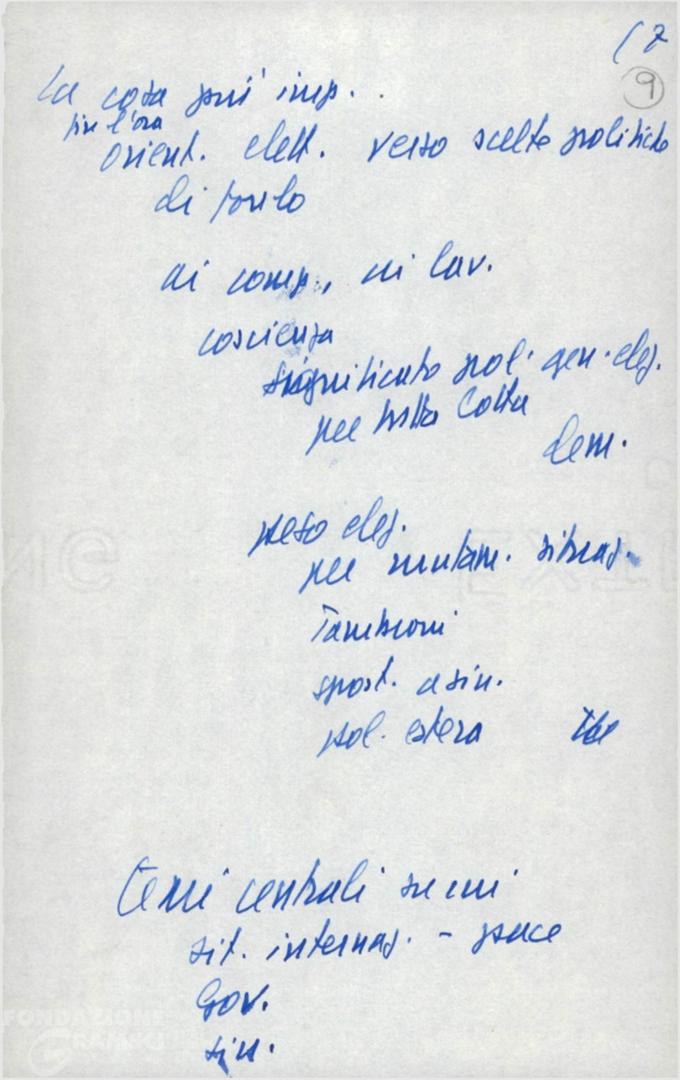 (7
9
La cosa più imp. .
fin d'ora
orient. elett. verso scelte politiche
di fondo
ai comp., ai lav.
coscienza
significato pol. gen. elez.
per lotta
dem.
peso elez.
per mutam. situaz.
Tambroni
spost. a sin.
pol. estera
Temi centrali su cui
sit. internaz. - pace
Gov.
sin.
FONDAZIONE
GRAMSCI